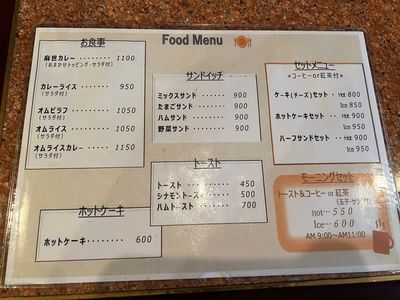 Food Menu
お食事
麻世カレー・・・・・・・ 1100
(おまかせトッピング・サラダ付)
カレーライス ・・・・・・・ 950
(サラダ付)
オムピラフ ・・・・・・・・ 1050
(サラダ付)
オムライス ・・・・・・・・ 1050
(サラダ付)
オムライスカレー ・・・・・ 1150
(サラダ付)
ホットケーキ
ホットケーキ・・・・・・・・ 600
サンドイッチ
ミックスサンド ・・・・・・ 900
たまごサンド ・・・・・・・ 900
ハムサンド ・・・・・・・・ 900
野菜サンド ・・・・・・・・ 900
トースト
トースト・・・・・・・・・・ 450
シナモントース・・・・・・・ 500
ハムトースト・・・・・・・・ 700
セットメニュー
《コーヒーor紅茶付》
ケーキ(チーズ)セット・・ Hot 800
Ice 850
ホットケーキセット・・・ Hot 900
Ice 950
ハーフサンドセット・・・ Hot 900
Ice 950
モーニングセット
トースト&コーヒー or 紅茶
(玉子・サラダ付)
Hot… 550
Ice… 600
AM 9:00～AM11:00